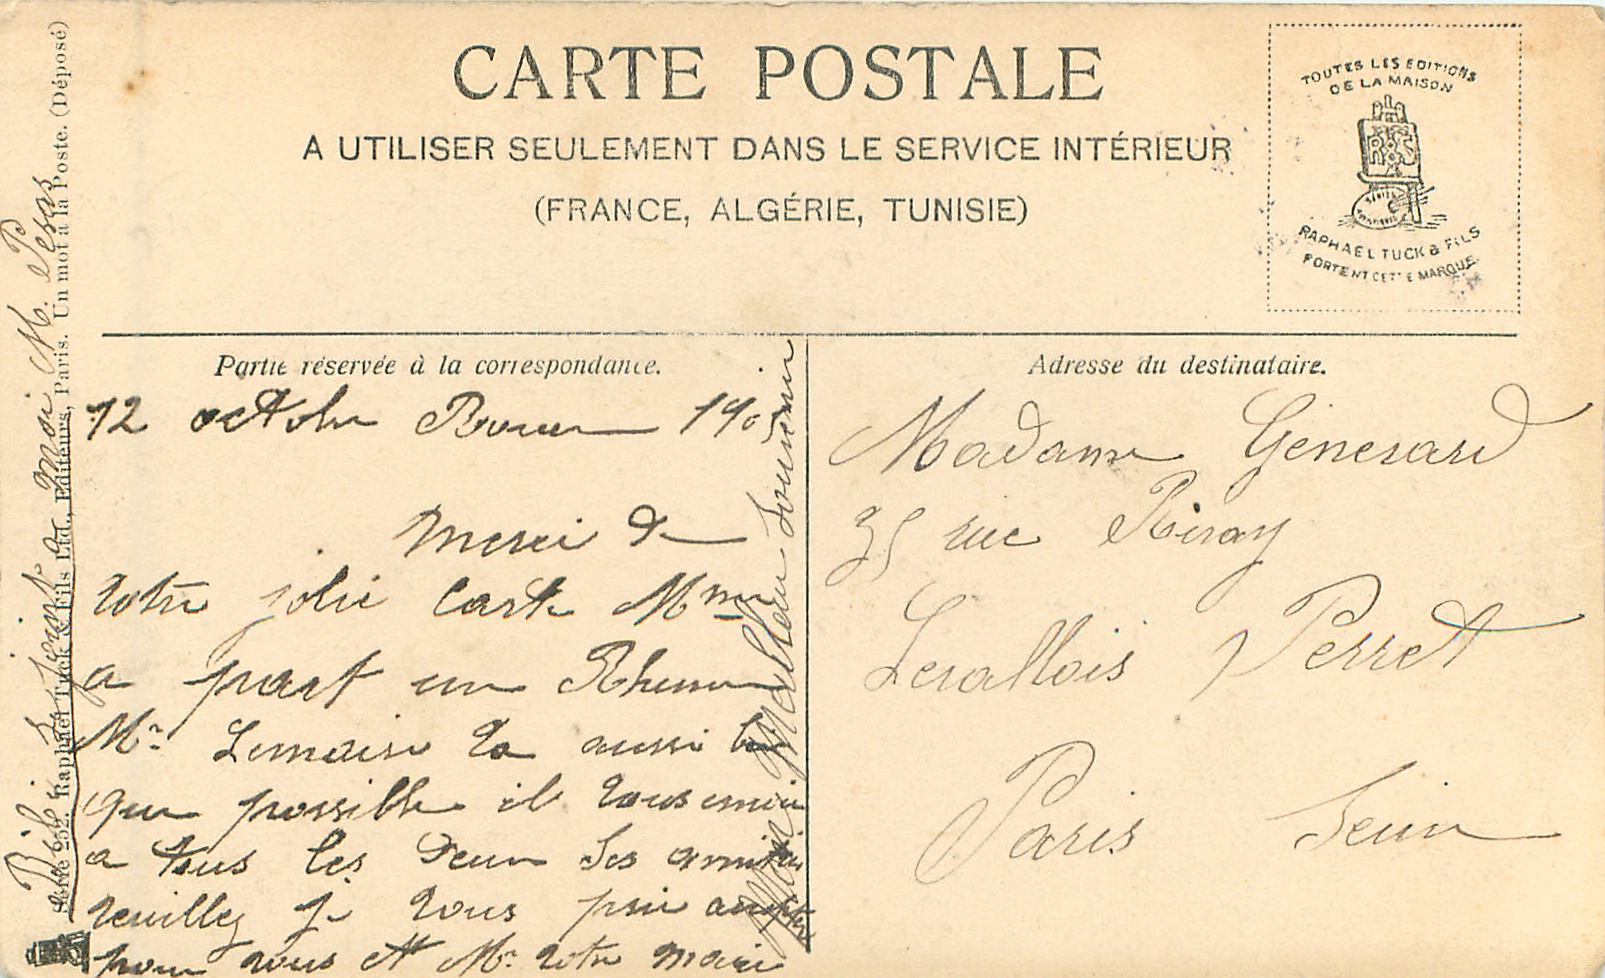 CARTE POSTALE
A UTILISER SEULEMENT DANS LE SERVICE INTÉRIEUR
(FRANCE, ALGÉRIE, TUNISIE)
TOUTES LES EDITIONS
DE LA MAISON
RAPHAEL TUCK & FILS
PORTENT CETTE MARQUE
Partie réservée à la correspondance.
12 octobre Rouen 1905
Merci de
votre jolie carte Mme
a part un Rhume
Mr Lemaire va aussi bien
que possible il vous envoie
a tous les deux ses amitiés
veuillez je vous prie accepter
pour vous et Mr votre mari
Mon Meilleur souvenir
Adresse du destinataire.
Madame Génerard
35 rue Rivay
Levallois Perret
Paris Seine
Série 252. Raphael Tuck & Fils Ltd., Editeurs, Paris. Un mot à la Poste. (Déposé)
a moi M.